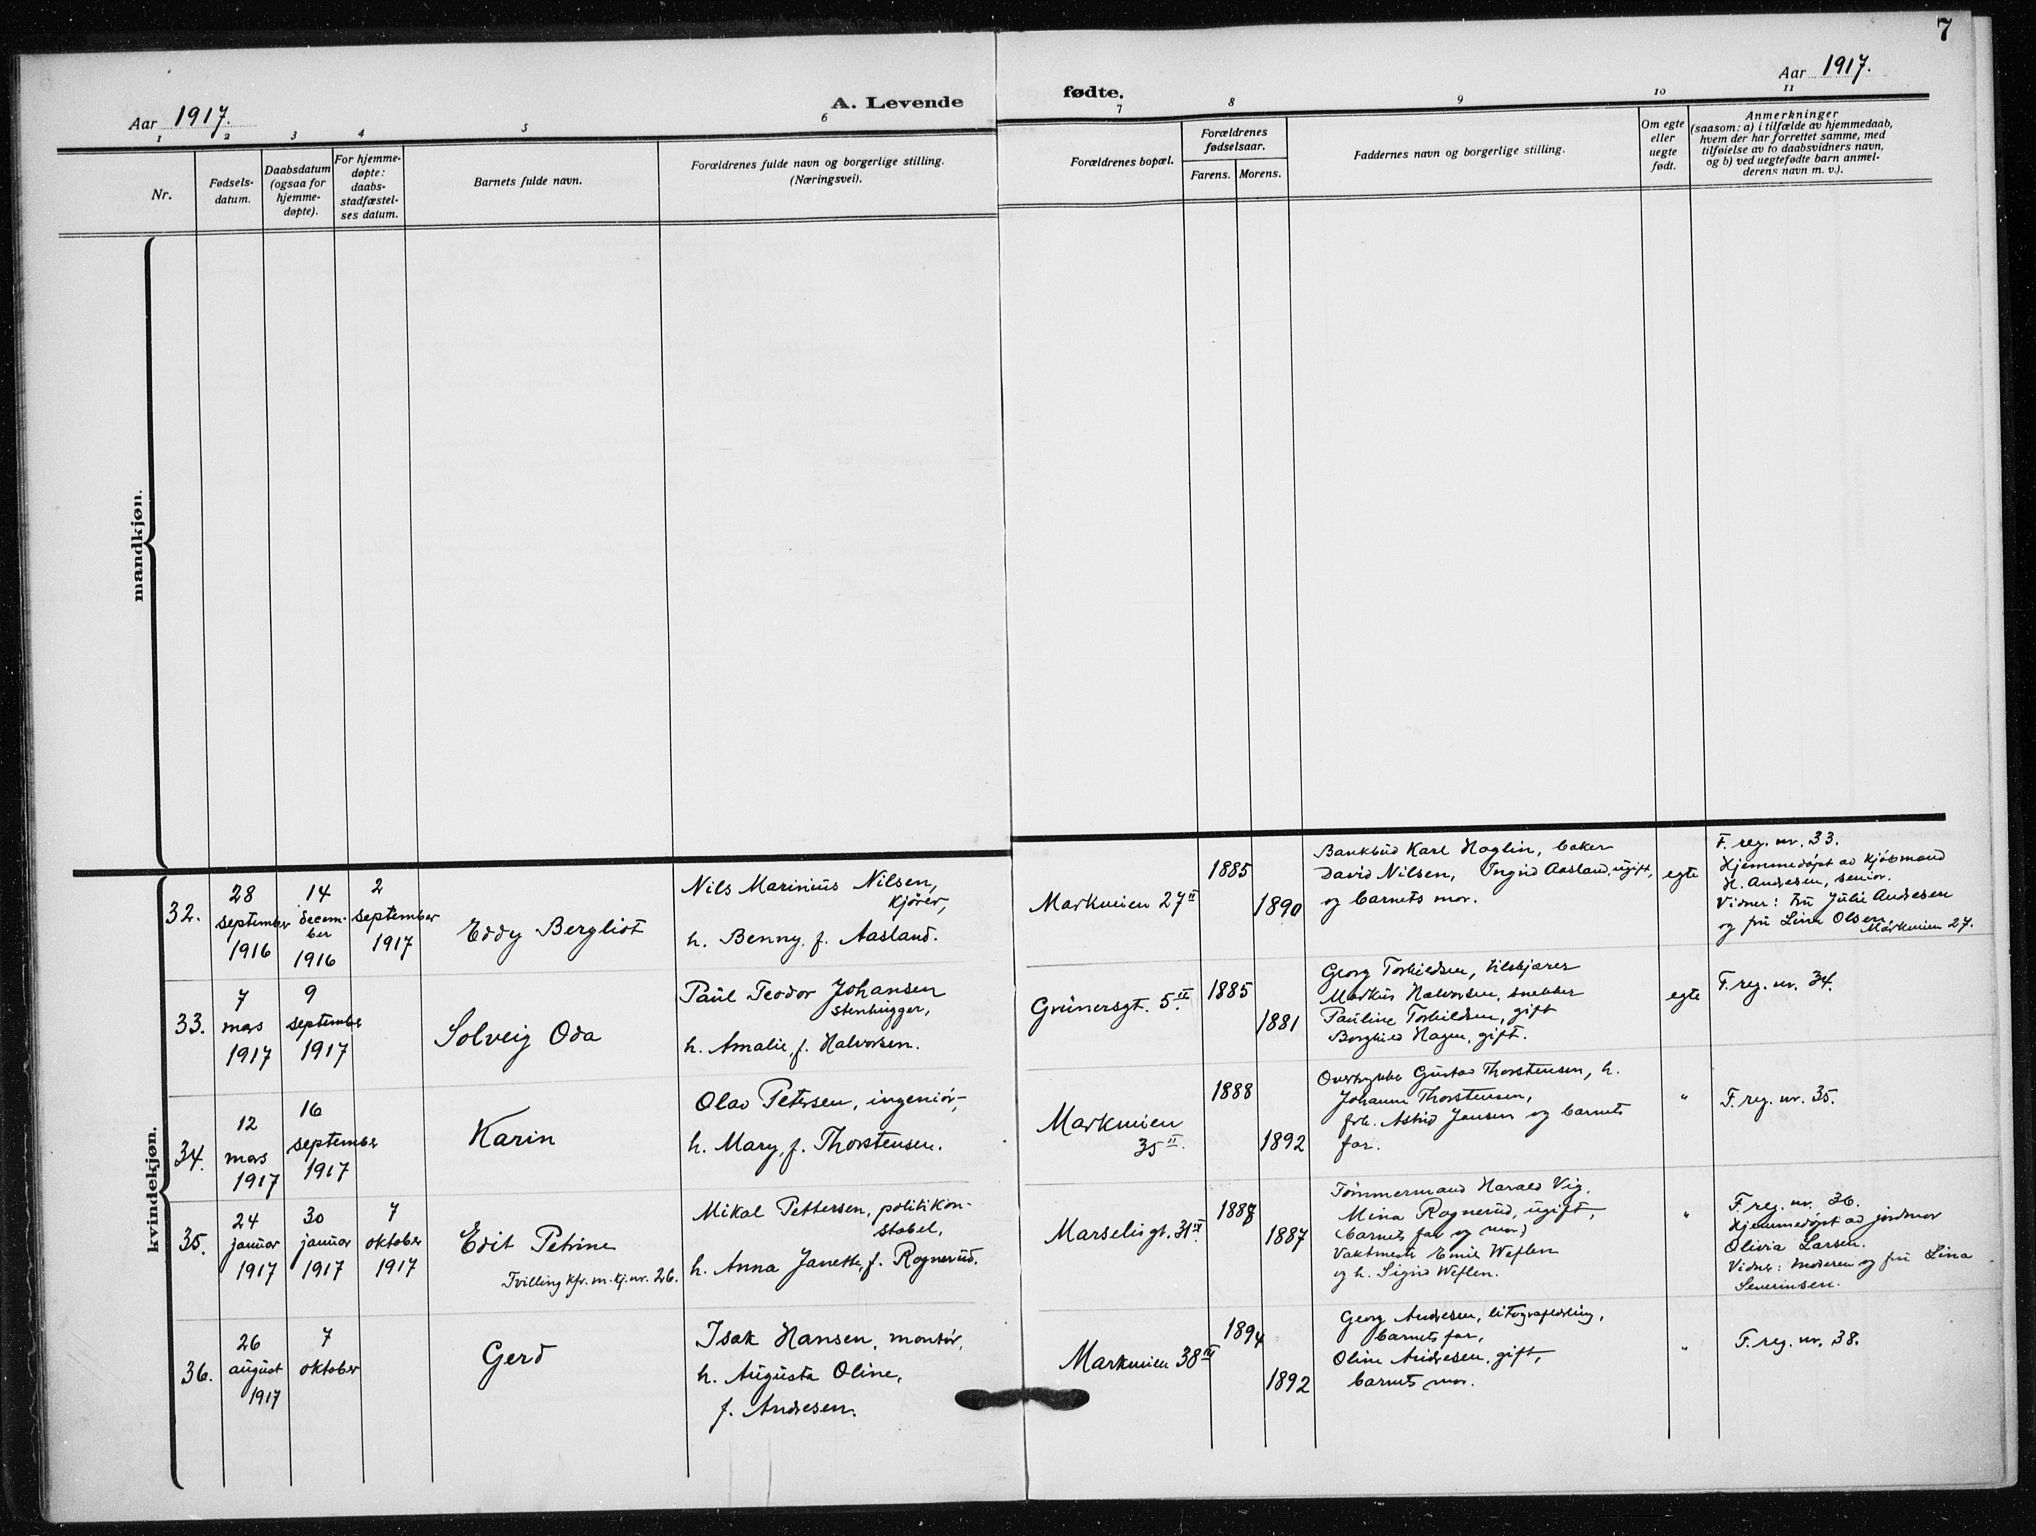 7
Aar 1917.
A. Levende
fødte.
Aar 1917.
1 2 3 4 5 6 7 8 9 10 11
Nr.
Fødsels-
datum.
Daabsdatum
(ogsaa for
hjemme-
døpte).
For hjemme-
døpte:
daabs-
stadfæstel-
ses datum.
Barnets fulde navn.
Forældrenes fulde navn og borgerlige stilling.
(Næringsvei).
Forældrenes bopæl.
Forældrenes
fødselsaar.
Farens. Morens.
Faddernes navn og borgerlige stilling.
Om egte
eller
uegte
født.
Anmerkninger
(saasom: a) i tilfælde av hjemmedaab,
hvem der har forrettet samme, med
tilføielse av to daabsvidners navn,
og b) ved uegtefødte barn anmel-
derens navn m. v.).
mandkjøn.
kvindekjøn.
32.
28
september
1916
14
decem-
ber
1916
2
september
1917
Eddy Bergliot
Nils Marinius Nilsen,
kjører,
h. Benny, f. Aasland.
Markveien 27 II
1885
1890
Bankbud Karl Haglin, baker
David Nilsen, Ingrid Aasland, ugift,
og barnets mor.
egte
F. reg. nr. 33.
Hjemmedøpt av kjøbmand
H. Andresen, senior.
Vidner: Fru Julie Andresen
og fru Lina Olsen
Markveien 27.
33.
7
mars
1917
9
september
1917
Solveig Oda
Paul Teodor Johansen
stenhugger,
h. Amalie, f. Halvorsen.
Grünersgt. 5 II.
1885
1881
Georg Torkildsen, tilskjærer
Markus Halvorsen, snekker
Pauline Torkildsen, gift
Borghild Hagen, gift.
egte
F. reg. nr. 34.
34.
12
mars
1917
16
september
1917
Karin
Olav Petersen, ingeniør,
h. Mary, f. Thorstensen.
Markveien
35 II.
1888
1892
Gustav Thorstensen, h.
Johanne Thorstensen,
frk. Astrid Jansen og barnets
far.
"
F. reg. nr. 35.
35.
24
januar
1917
30
januar
1917
7
oktober
1917
Edit Petrine
Tvilling kfr. m. kj. nr. 26.
Mikal Pettersen, politikon-
stabel,
h. Anna Janette, f. Rognerud.
Marselisgt. 31 IV.
1888
1887
Tømmermand Harald Vig,
Mina Rognerud, ugift,
(barnets far og mor)
Vaktmester Emil Weflen
og h. Sigrid Weflen.
"
F. reg. nr. 36.
Hjemmedøpt av jordmor
Olivia Larsen.
Vidner: moderen og fru Lina
Severinsen.
36.
26
august
1917
7
oktober
Gerd
Isak Hansen, montør,
h. Augusta Oline,
f. Andresen.
Markveien 38 III
1894
1892
Georg Andresen, litograflærling,
barnets far,
Oline Andresen, gift,
barnets mor.
"
F. reg. nr. 38.